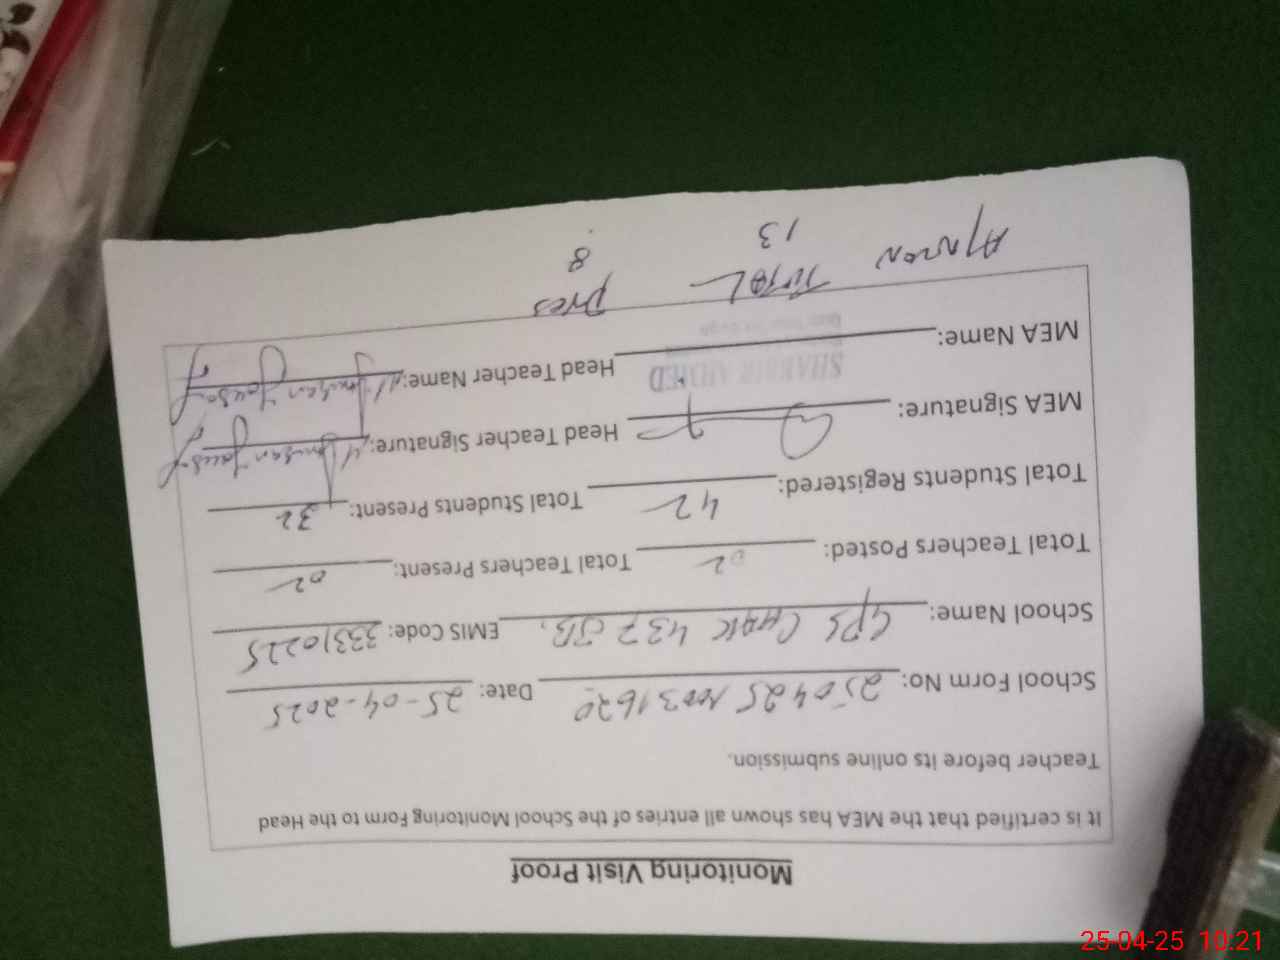 Monitoring Visit Proof
It is certified that the MEA has shown all entries of the School Monitoring Form to the Head
Teacher before its online submission.
School Form No: 250425 Date: 25-04-2025
School Name: GPS CHAK 437 JB, EMIS Code: 33310225
Total Teachers Posted: 02 Total Teachers Present: 02
Total Students Registered: 42 Total Students Present: 32
MEA Signature: Head Teacher Signature:
MEA Name: SHABBIR AHMED Head Teacher Name:
TOTAL Pres
13 8
25-04-25 10:21